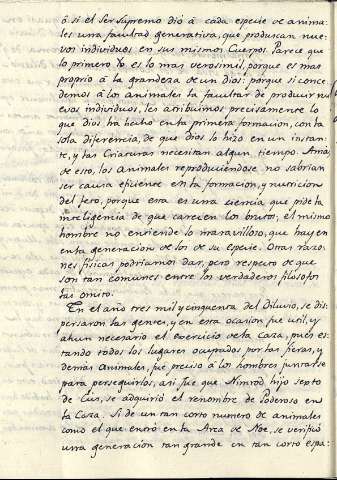 ó si el Ser Supremo dió á cada especie de anima-
les una facultad generativa, que produscan nue-
vos individuos en sus mismos Cuerpos. Parece que
lo primero es lo mas verosimil, porque es mas
proprio á la grandeza de un dios: porque si conce-
demos á los animales la facultar de producir nu-
evos individuos, les atribuimos precisamente lo
que dios ha hecho en la primera formacion, con la
sola diferencia, de que dios lo hizo en un instan-
te, y las Criaturas necesitan algun tiempo. Amas
de esto, los animales reproduciendose no sabrian
ser causa eficiente en la formacion, y nutricion
del feto, porque esta es una ciencia que pide la
inteligencia de que carecen los brutos; el mismo
hombre no entiende lo maravilloso, que hay en
en la generacion de los de su especie. Otras razo-
nes fisicas podriamos dar, pero respeto de que
son tan comunes entre los verdaderos filosofos
las omito.
En el año tres mil y cinquenta del diluvio, se dis-
persaron las gentes, y en esta ocasion fue util, y
ahun necesario el exercicio de la Caza, pues es-
tando todos los lugares ocupados por las fieras, y
demás animales, fue preciso á los hombres juntarse
para perseguirlos; asi fue que Nimrod hijo septo
de Cus, se adquirió el renombre de Poderoso en
la Caza. Si de un tan corto numero de animales
como el que entró en la Arca de Noe, se verificó
una generacion tan grande en tan corto espa-